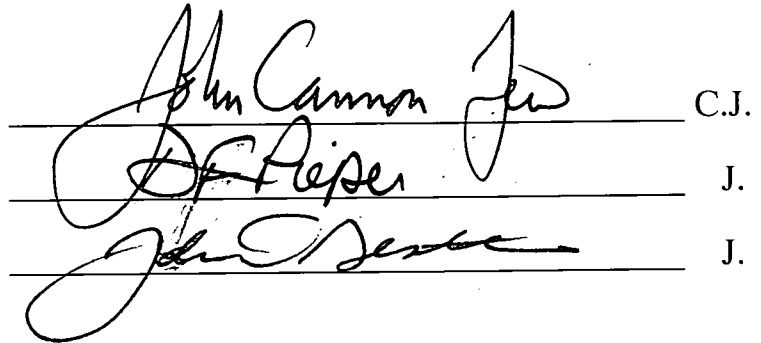 John Cannon Few C.J.
DF Pieper J.
John J.